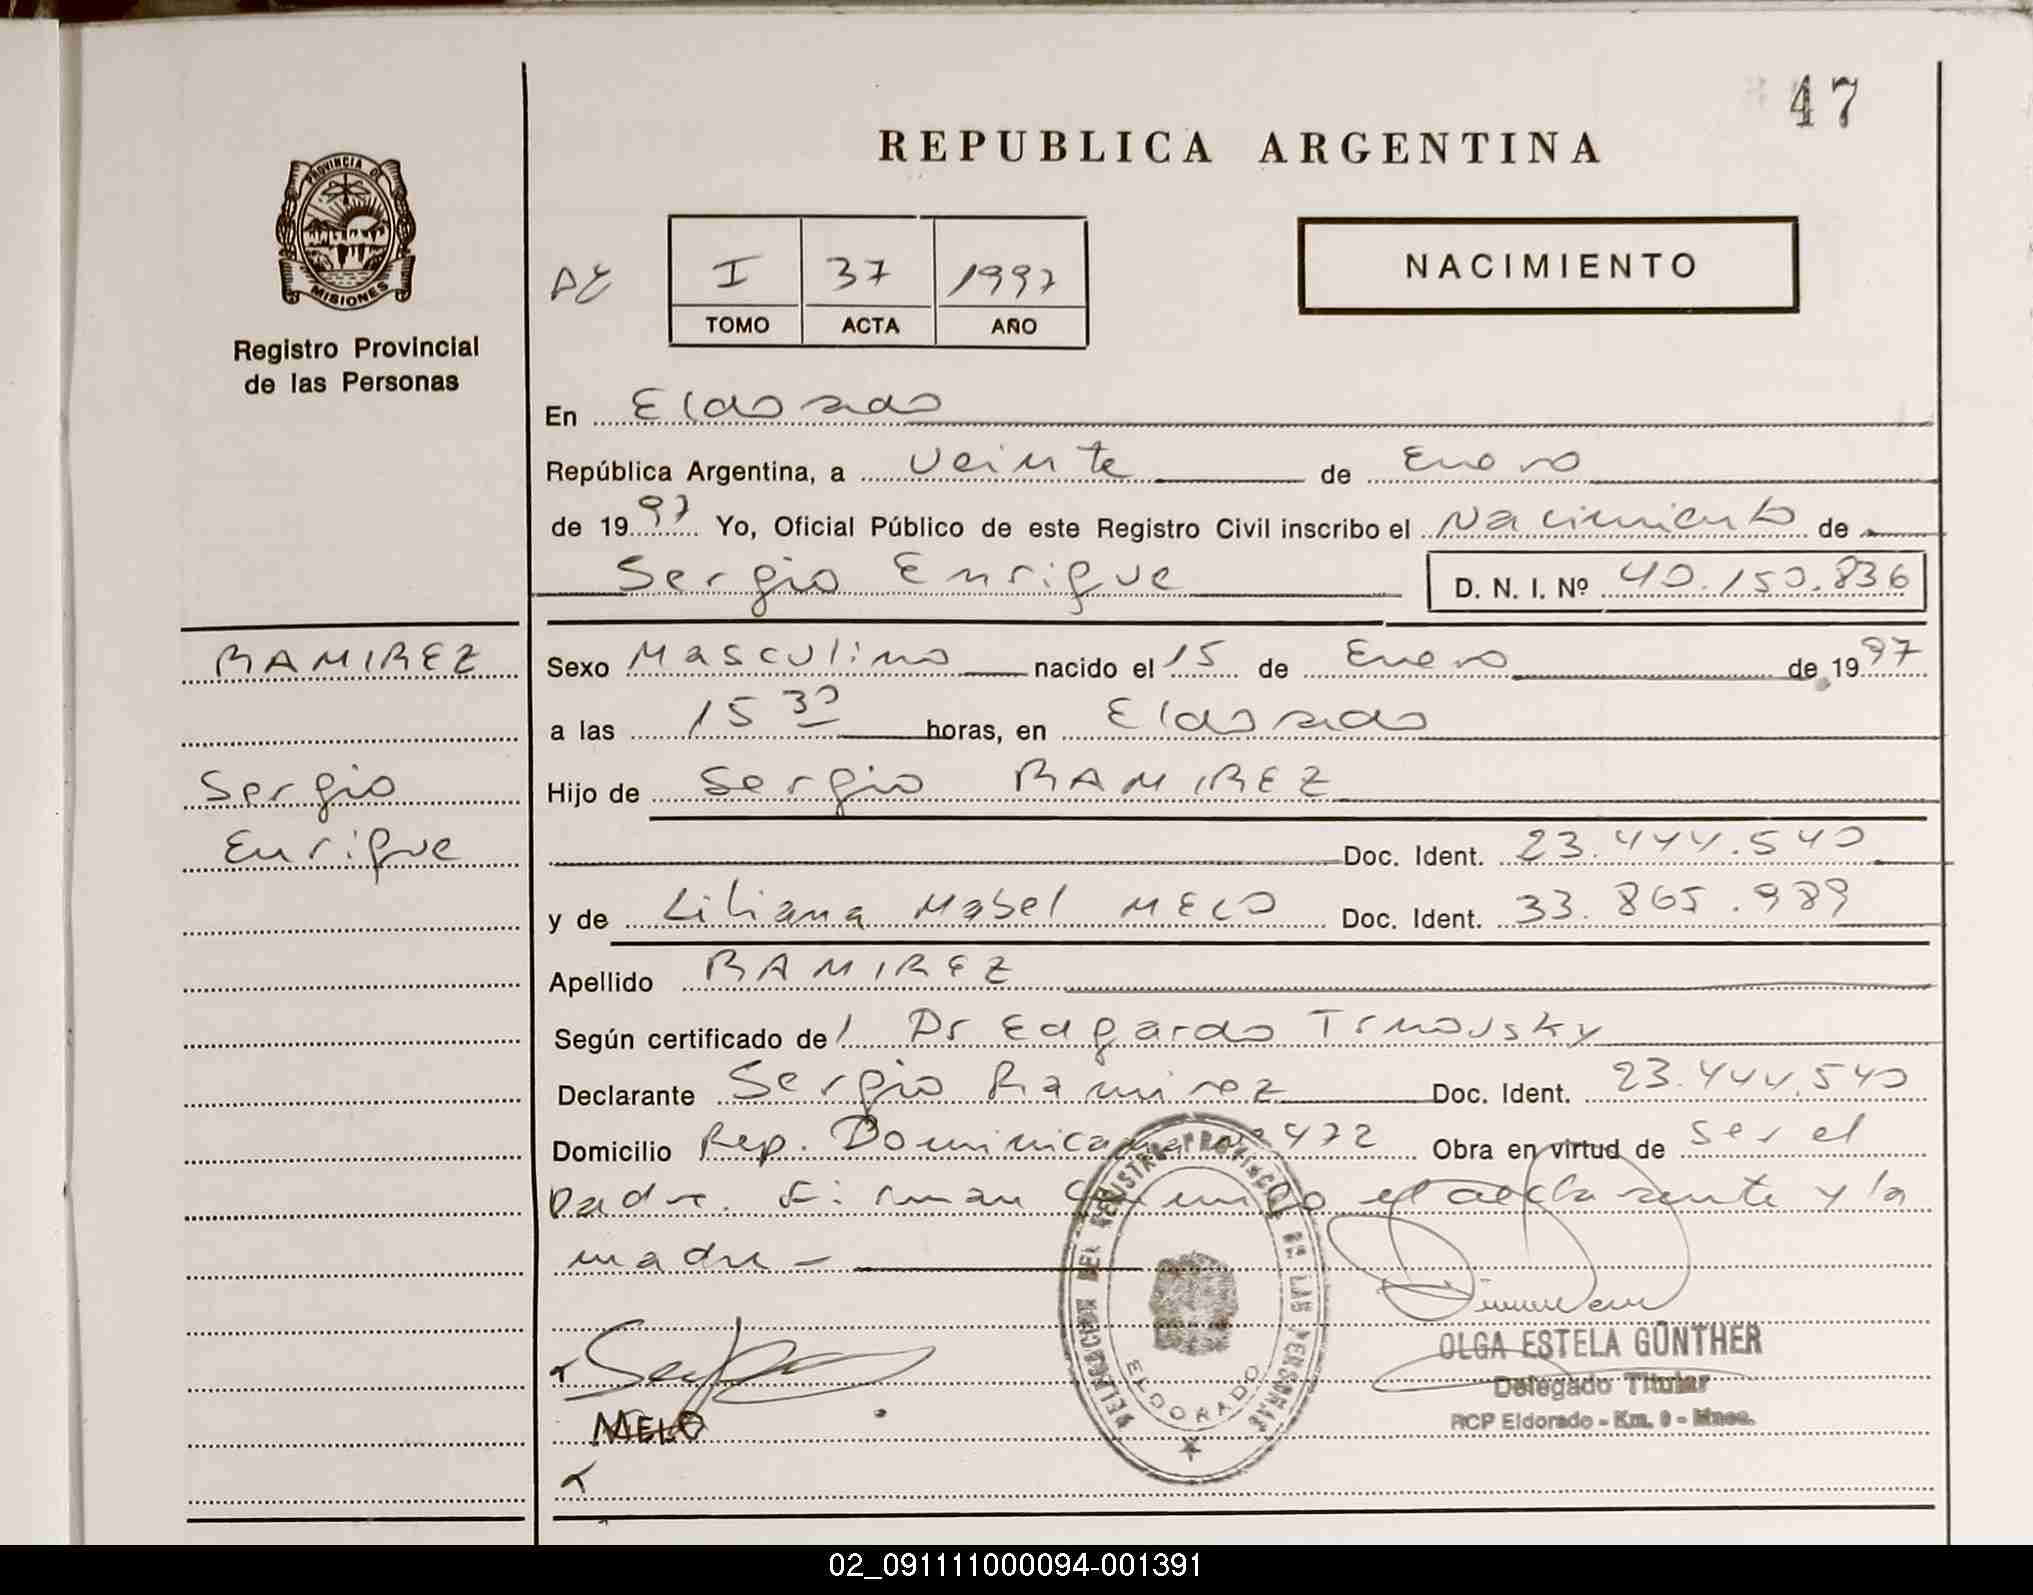 47
REPUBLICA ARGENTINA
PROVINCIA DE
MISIONES
Registro Provincial
de las Personas
I 37 1997
TOMO ACTA AÑO
NACIMIENTO
En Eldorado
República Argentina, a veinte de Enero
de 1997 Yo, Oficial Público de este Registro Civil inscribo el Nacimiento de
Sergio Enrique D. N. I. Nº 40.150.836
RAMIREZ
Sergio
Enrique
Sexo Masculino nacido el 15 de Enero de 1997
a las 15 30 horas, en Eldorado
Hijo de Sergio RAMIREZ
Doc. Ident. 23.444.540
y de Liliana Mabel MELO Doc. Ident. 33.865.989
Apellido RAMIREZ
Según certificado del Dr Edgardo Trnovsky
Declarante Sergio Ramirez Doc. Ident. 23.444.540
Domicilio Rep. Dominicana 472 Obra en virtud de ser el
padre. Firman el declarante y la
madre –
MELO
DELEGACION DEL REGISTRO PROVINCIAL DE LAS PERSONAS
ELDORADO
OLGA ESTELA GÜNTHER
Delegado Titular
RCP Eldorado - Km. 9 - Mnes.
02_091111000094-001391